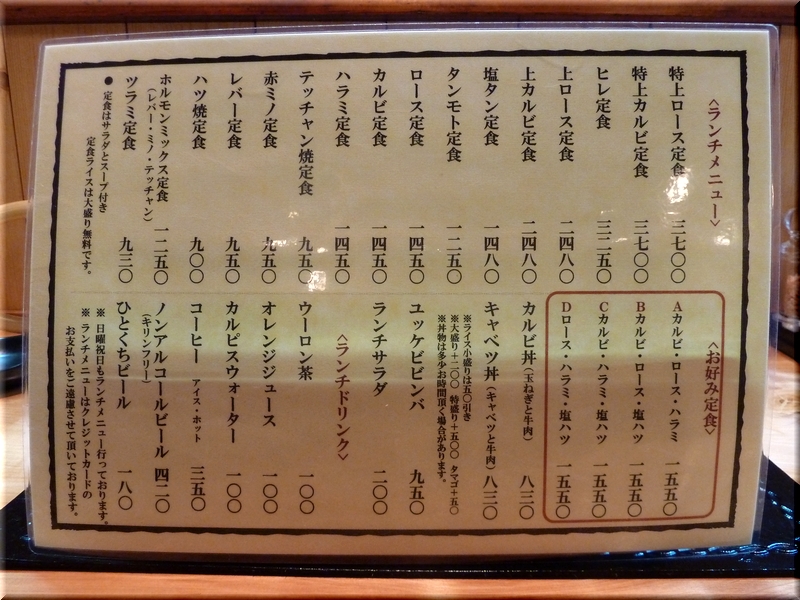 〈ランチメニュー〉
特上ロース定食 三七〇〇
特上カルビ定食 三七〇〇
ヒレ定食 三二五〇
上ロース定食 二四八〇
上カルビ定食 二四八〇
塩タン定食 一四八〇
タンモト定食 一二五〇
ロース定食 一四五〇
カルビ定食 一四五〇
ハラミ定食 一四五〇
テッチャン焼定食 九五〇
赤ミノ定食 九五〇
レバー定食 九五〇
ハツ焼定食 九〇〇
ホルモンミックス定食 一二五〇
(レバー・ミノ・テッチャン)
ツラミ定食 九三〇
● 定食はサラダとスープ付き
定食ライスは大盛り無料です。
〈お好み定食〉
Aカルビ・ロース・ハラミ 一五五〇
Bカルビ・ロース・塩ハツ 一五五〇
Cカルビ・ハラミ・塩ハツ 一五五〇
Dロース・ハラミ・塩ハツ 一五五〇
カルビ丼(玉ねぎと牛肉) 八三〇
キャベツ丼(キャベツと牛肉) 八三〇
※ライス小盛りは五〇引き
※大盛り+二〇〇 特盛り+五〇〇 タマゴ+五〇
※丼物は多少お時間頂く場合があります。
ユッケビビンバ 九五〇
ランチサラダ 二〇〇
〈ランチドリンク〉
ウーロン茶 一〇〇
オレンジジュース 一〇〇
カルピスウォーター 一〇〇
コーヒー アイス・ホット 三五〇
ノンアルコールビール 四二〇
(キリンフリー)
ひとくちビール 一八〇
※ 日曜祝日もランチメニュー行っております。
※ ランチメニューはクレジットカードの
お支払いをご遠慮させて頂いております。